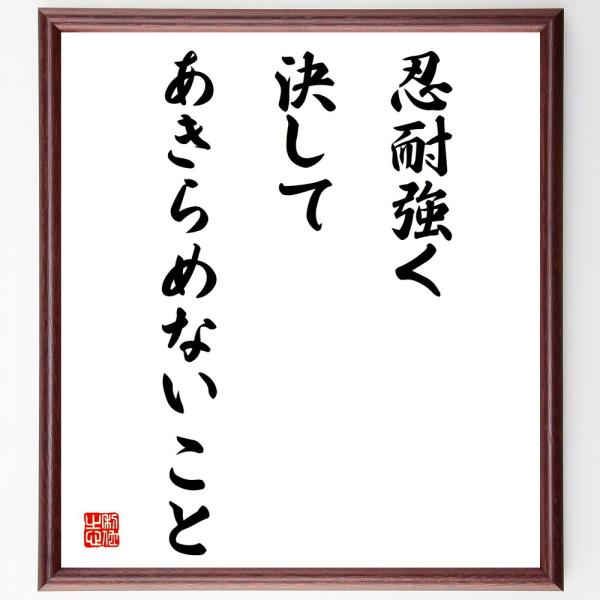 忍耐強く
決して
あきらめないこと